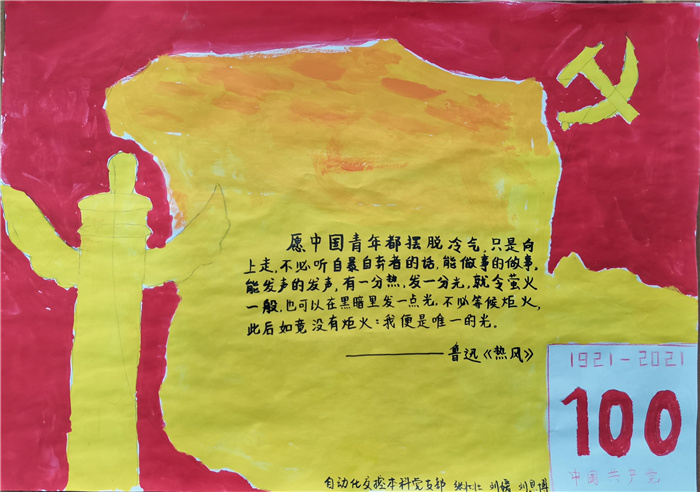 愿中国青年都摆脱冷气,只是向
上走,不必听自暴自弃者的话,能做事的做事,
能发声的发声,有一分热,发一分光,就令萤火
一般,也可以在黑暗里发一点光,不必等候炬火,
此后如竟没有炬火:我便是唯一的光。
——鲁迅《热风》
1921-2021
100
中国共产党
自动化 本科党支部 刘